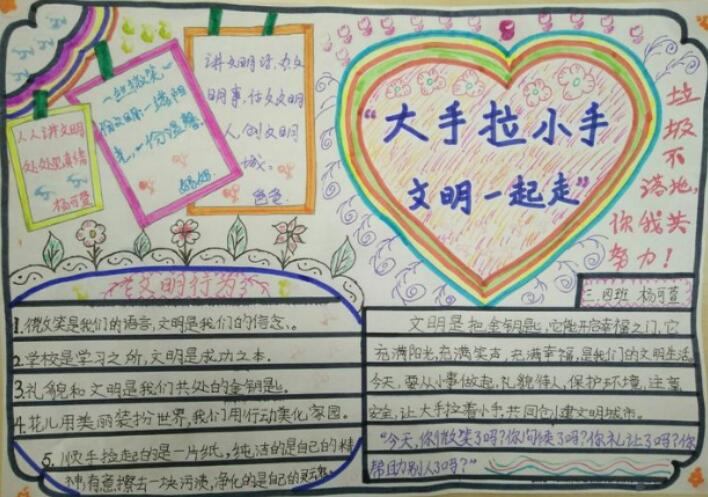 人人讲文明
处处见真情
杨可萱
一抹微笑
一份温馨.
妈妈
讲文明话、办文
明事、做文明
人、创文明
城。
爸爸
“大手拉小手
文明一起走”
垃圾不落地,
你我共
努力!
三.四班 杨可萱
文明行为
1.微笑是我们的语言,文明是我们的信念。
2.学校是学习之所,文明是成功之本.
3.礼貌和文明是我们共处的金钥匙。
4.花儿用美丽装扮世界,我们用行动美化家园。
5.顺手捡起的是一片纸,纯洁的是自己的精
神,有意擦去一块污渍,净化的是自己的灵魂.
文明是把金钥匙,它能开启幸福之门,它
充满阳光,充满笑声,充满幸福,是我们的文明生活.
今天,要从小事做起,礼貌待人,保护环境,注意
安全,让大手拉着小手,共同创建文明城市。
“今天,你微笑了吗?你问候了吗?你礼让了吗?你
帮助别人了吗?”